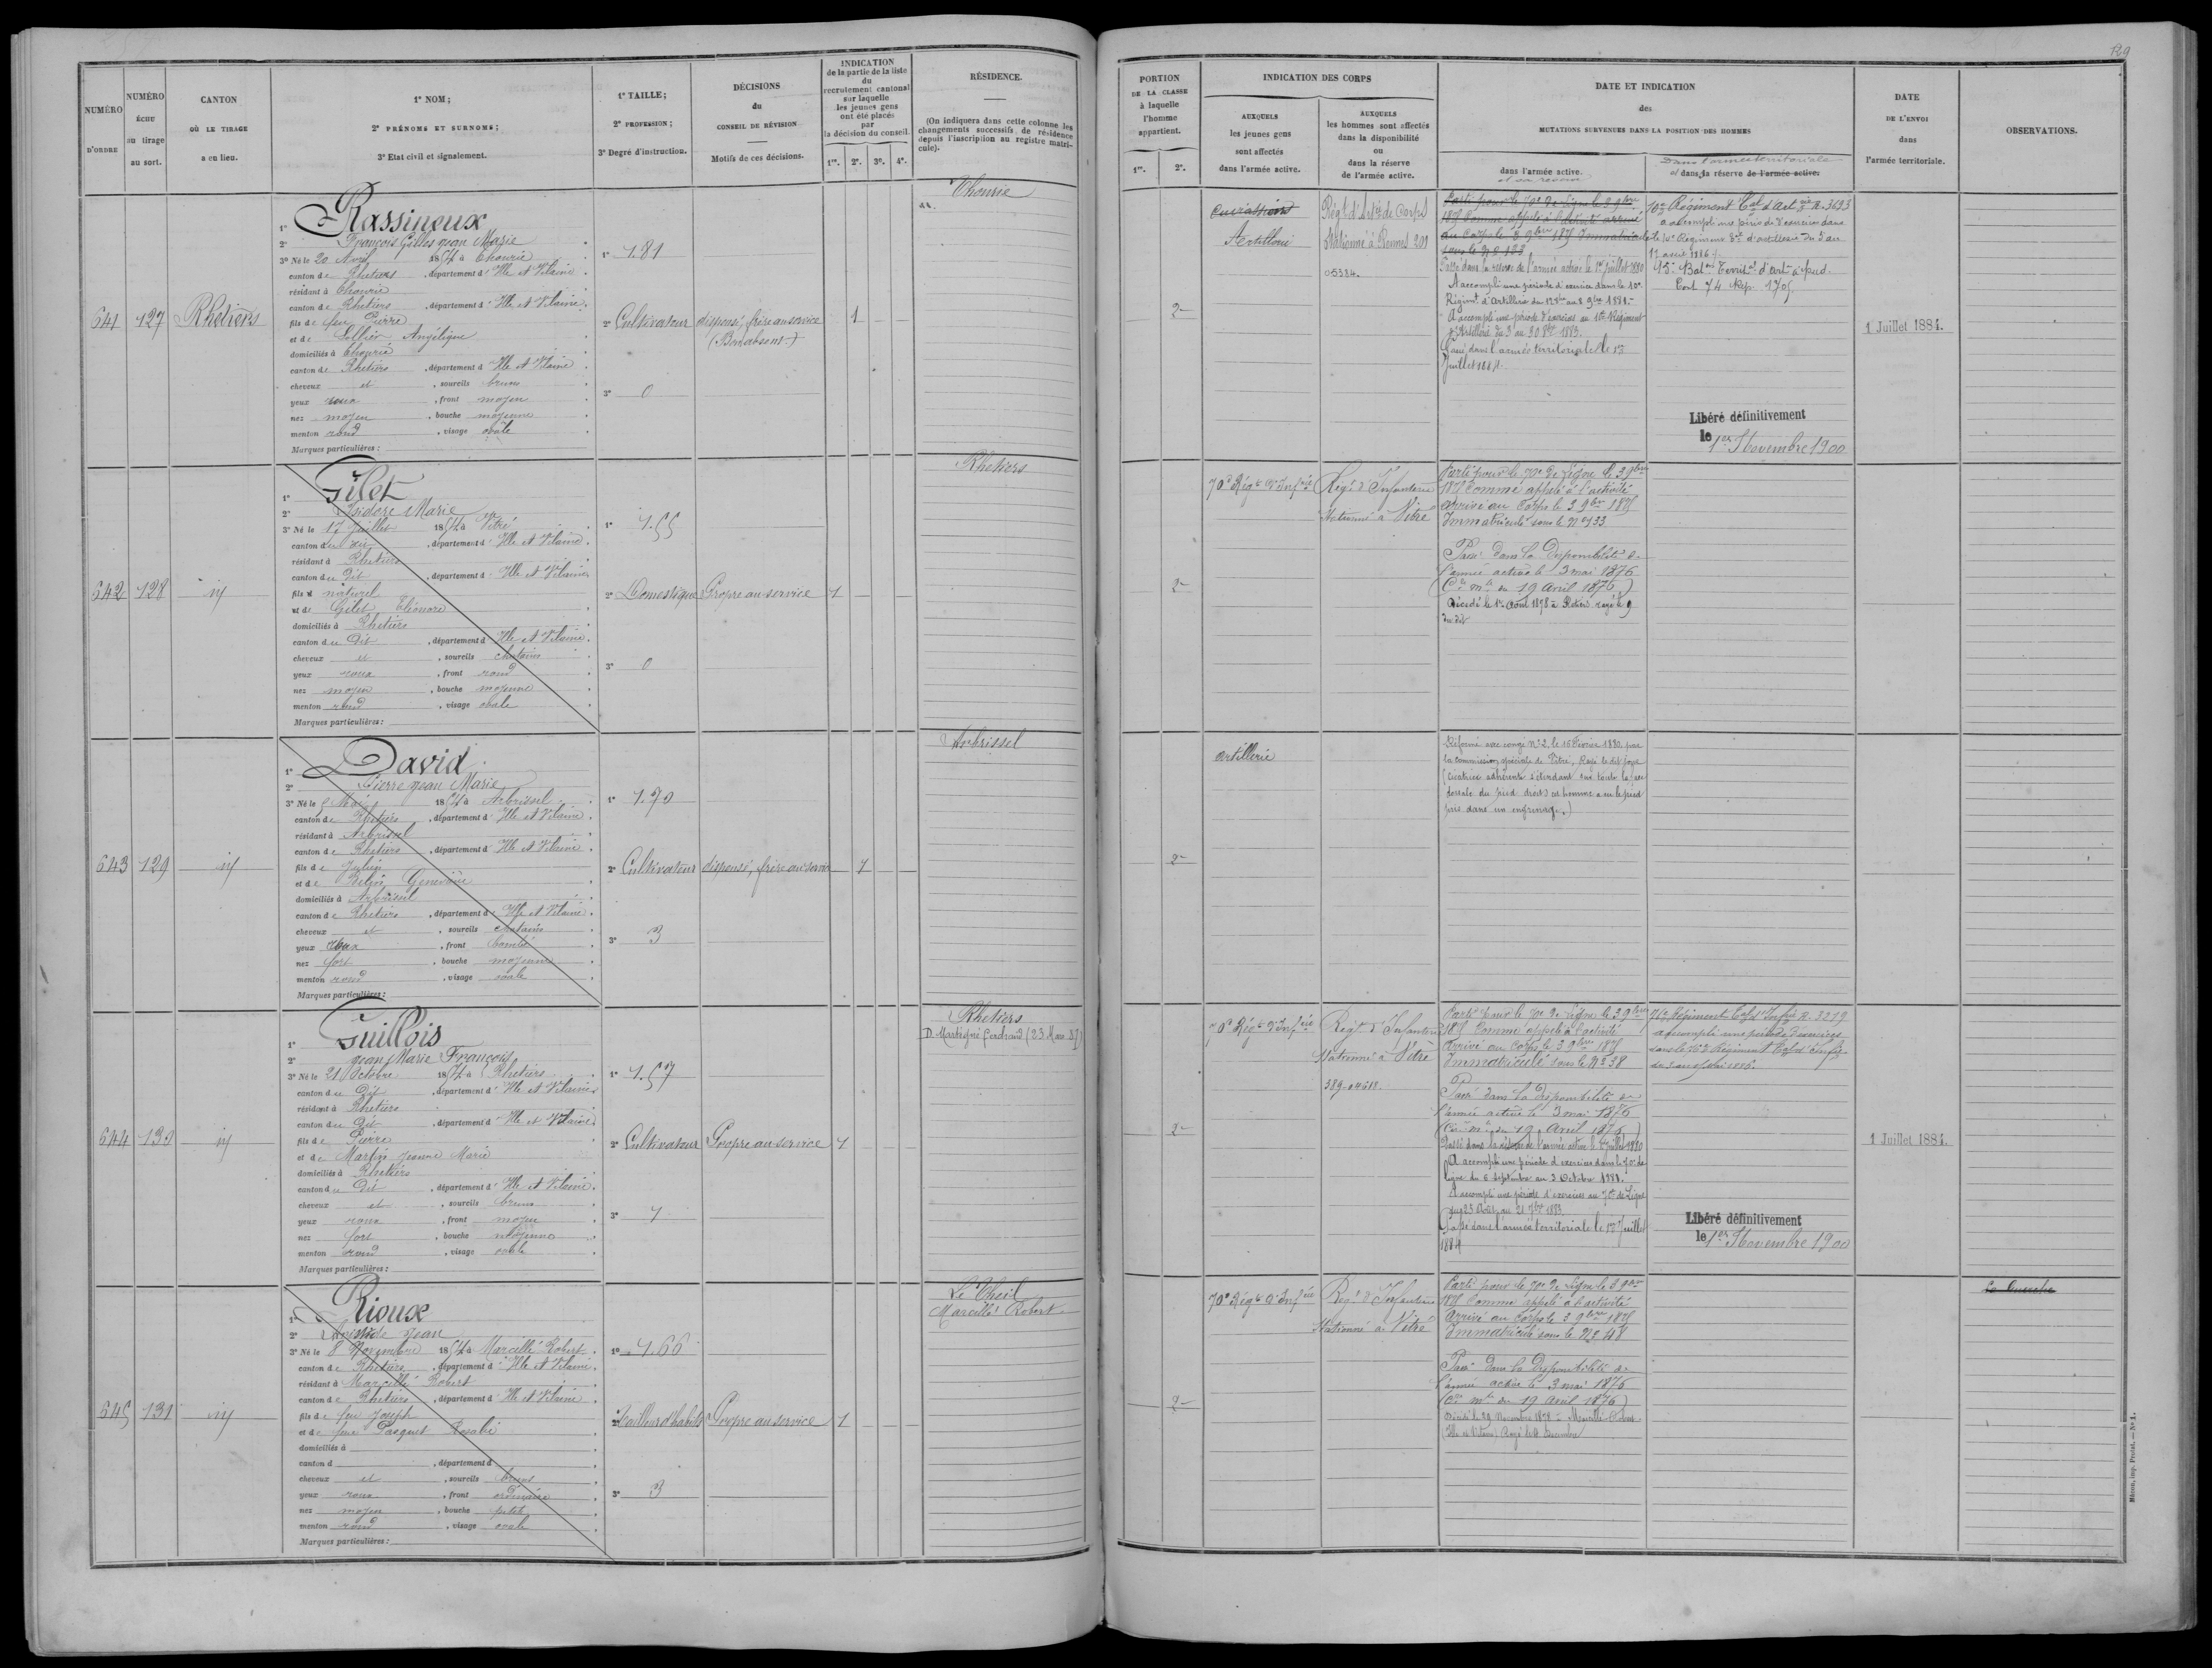 129
NUMÉRO
D'ORDRE
NUMÉRO
ÉCHU
au tirage
au sort.
CANTON
OÙ LE TIRAGE
a eu lieu.
1° NOM;
2° PRÉNOMS ET SURNOMS;
3° Etat civil et signalement.
1° TAILLE;
2° PROFESSION;
3° Degré d'instruction.
DÉCISIONS
du
CONSEIL DE RÉVISION
Motifs de ces décisions.
INDICATION
de la partie de la liste
du
recrutement cantonal
sur laquelle
les jeunes gens
ont été placés
par
la décision du conseil.
1re. 2e. 3e. 4e.
RÉSIDENCE.
(On indiquera dans cette colonne les
changements successifs de résidence
depuis l'inscription au registre matri-
cule).
PORTION
DE LA CLASSE
à laquelle
l'homme
appartient.
1re. 2e.
INDICATION DES CORPS
AUXQUELS
les jeunes gens
sont affectés
dans l'armée active.
AUXQUELS
les hommes sont affectés
dans la disponibilité
ou
dans la réserve
de l'armée active.
DATE ET INDICATION
des
MUTATIONS SURVENUES DANS LA POSITION DES HOMMES
dans l'armée active.
et sa réserve
Dans l'armée territoriale
et dans sa réserve de l'armée active.
DATE
DE L'ENVOI
dans
l'armée territoriale.
OBSERVATIONS.
641 127 Rhetiers
1° Rassineux
2° François Gilles Jean Marie
3° Né le 20 Avril 1854 à Thourie
canton de Rhetiers, département d'Ille et Vilaine.
résidant à Thourie
canton de Rhetiers, département d'Ille et Vilaine.
fils de feu Pierre
et de Angélique
domiciliés à Thourie
canton de Rhetiers, département d'Ille et Vilaine.
cheveux et, sourcils bruns
yeux roux, front moyen
nez moyen, bouche moyenne
menton rond, visage ovale
Marques particulières:
1° 1.81
2° Cultivateur
3° 0
dispensé, frère au service
(Bon absent)
1
Thourie
2e
Cuirassiers
Artillerie
Régt. d'Art.ie de Corps
Stationné à Rennes 201
05384.
Parti pour le 70e de Ligne le 3 9bre
1875 Comme appelé à l'activité arrivé
au Corps le 3 9bre 1875 Immatriculé
sous le No 133
Passé dans la réserve de l'armée active le 1er Juillet 1880
A accompli une période d'exercice dans le 10e
Régimt. d'Artillerie du 12 8bre au 8 9bre 1881.
A accompli une période d'exercices au 10e Régiment
d'Artillerie du 3 au 30 8bre 1883.
Passé dans l'armée territoriale le 1er
Juillet 1884.
10e Régiment Tal d'Art.ie R. 3693
a accompli une période d'exercices dans
le 10e Régiment Tal d'artillerie du 5 au
17 avril 1886
15e Bat.on Territ.al d'Art. à pied.
Cont 74 Rép. 1705
Libéré définitivement
le 1er Novembre 1900
1 Juillet 1884.
642 128 id
1° Gilet
2° Isidore Marie
3° Né le 17 Juillet 1854 à Vitré
canton du dit, département d'Ille et Vilaine.
résidant à Rhetiers
canton du Dit, département d'Ille et Vilaine
fils naturel
et de Gilet Eléonore
domiciliés à Rhetiers
canton du Dit, département d'Ille et Vilaine.
cheveux et, sourcils chatains
yeux roux, front rond
nez moyen, bouche moyenne
menton rond, visage ovale
Marques particulières:
1° 1.55
2° Domestique
3° 0
Propre au service
1
Rhetiers
2e
70e Régt. d'Inf.rie
Régt. d'Infanterie
Stationné à Vitré
Parti pour le 70e de Ligne le 3 9bre
1875 Comme appelé à l'activité
Arrivé au Corps le 3 9bre 1875
Immatriculé sous le No 133
Passé dans la Disponibilité de
l'armée active le 3 mai 1876
(Cre mle du 19 Avril 1876)
Décédé le 1er Aout 1878 à Rhetiers rayé le 9
du dit
643 129 id
1° David
2° Pierre Jean Marie
3° Né le 5 Mai 1854 à Arbrissel
canton de Rhetiers, département d'Ille et Vilaine.
résidant à Arbrissel
canton de Rhetiers, département d'Ille et Vilaine.
fils de Julien
et de Geneviève
domiciliés à Arbrissel
canton de Rhetiers, département d'Ille et Vilaine.
cheveux et, sourcils chatains
yeux roux, front bombé
nez fort, bouche moyenne
menton rond, visage ovale
Marques particulières:
1° 1.70
2° Cultivateur
3° 3
dispensé, frère au service
1
Arbrissel
2e
Artillerie
Réformé avec congé No 2, le 16 Février 1880 par
la commission spéciale de Vitré, Rayé le dit jour
(Cicatrice adhérente s'étendant sur toute la face
dorsale du pied droit) cet homme a eu le pied
pris dans un engrenage.)
644 130 id
1° Guillois
2° Jean Marie François
3° Né le 21 Octobre 1854 à Rhetiers
canton du Dit, département d'Ille et Vilaine
résidant à Rhetiers
canton du Dit, département d'Ille et Vilaine
fils de Pierre
et de Martin Jeanne Marie
domiciliés à Rhetiers
canton du Dit, département d'Ille et Vilaine.
cheveux et, sourcils bruns
yeux roux, front moyen
nez fort, bouche moyenne
menton rond, visage ovale
Marques particulières:
1° 1.57
2° Cultivateur
3° 1
Propre au service
1
Rhetiers
D. Martigné ferchaud (23 Mars 85)
2e
70e Régt. d'Inf.rie
Régt. d'Infanterie
Stationné à Vitré
389-04618.
Parti pour le 70e de Ligne le 3 9bre
1875 Comme appelé à l'activité
Arrivé au Corps le 3 9bre 1875
Immatriculé sous le No 38
Passé dans la disponibilité de
l'armée active le 3 mai 1876
(Cre mle du 19 Avril 1876)
Passé dans la réserve de l'armée active le 1er Juillet 1880
A accompli une période d'exercices dans le 70e de
ligne du 6 Septembre au 3 Octobre 1881.
A accompli une période d'exercices au 70e de Ligne
du 25 Août au 21 7bre 1883
Passé dans l'armée territoriale le 1er Juillet
1884
76e Régiment Tal d'Inf.ie R. 3279
a accompli une période d'exercices
dans le 76e Régiment Tal d'inf.ie
Libéré définitivement
le 1er Novembre 1900
1 Juillet 1884.
645 131 id
1° Rioux
2° Aristide Jean
3° Né le 8 Novembre 1854 à Marcillé Robert
canton de Rhetiers, département d'Ille et Vilaine.
résidant à Marcillé Robert
canton de Rhetiers, département d'Ille et Vilaine
fils de feu Joseph
et de feue Pasquet Rosalie
domiciliés à
canton d, département d
cheveux et, sourcils bruns
yeux roux, front ordinaire
nez moyen, bouche petite
menton rond, visage ovale
Marques particulières:
1° 1.66
2° Tailleur d'habits
3° 3
Propre au service
1
Le Theil
Marcillé Robert
2e
70e Régt. d'Inf.rie
Régt. d'Infanterie
Stationné à Vitré
Parti pour le 70e de Ligne le 3 9bre
1875 Comme appelé à l'activité
Arrivé au Corps le 3 9bre 1875
Immatriculé sous le No 48
Passé dans la Disponibilité de
l'armée active le 3 mai 1876
(Cre mle du 19 Avril 1876)
Décédé le 29 Novembre 1878 à Marcillé Robert
(Ille et Vilaine) Rayé le Décembre
Mâcon, imp. Protat. — No 1.